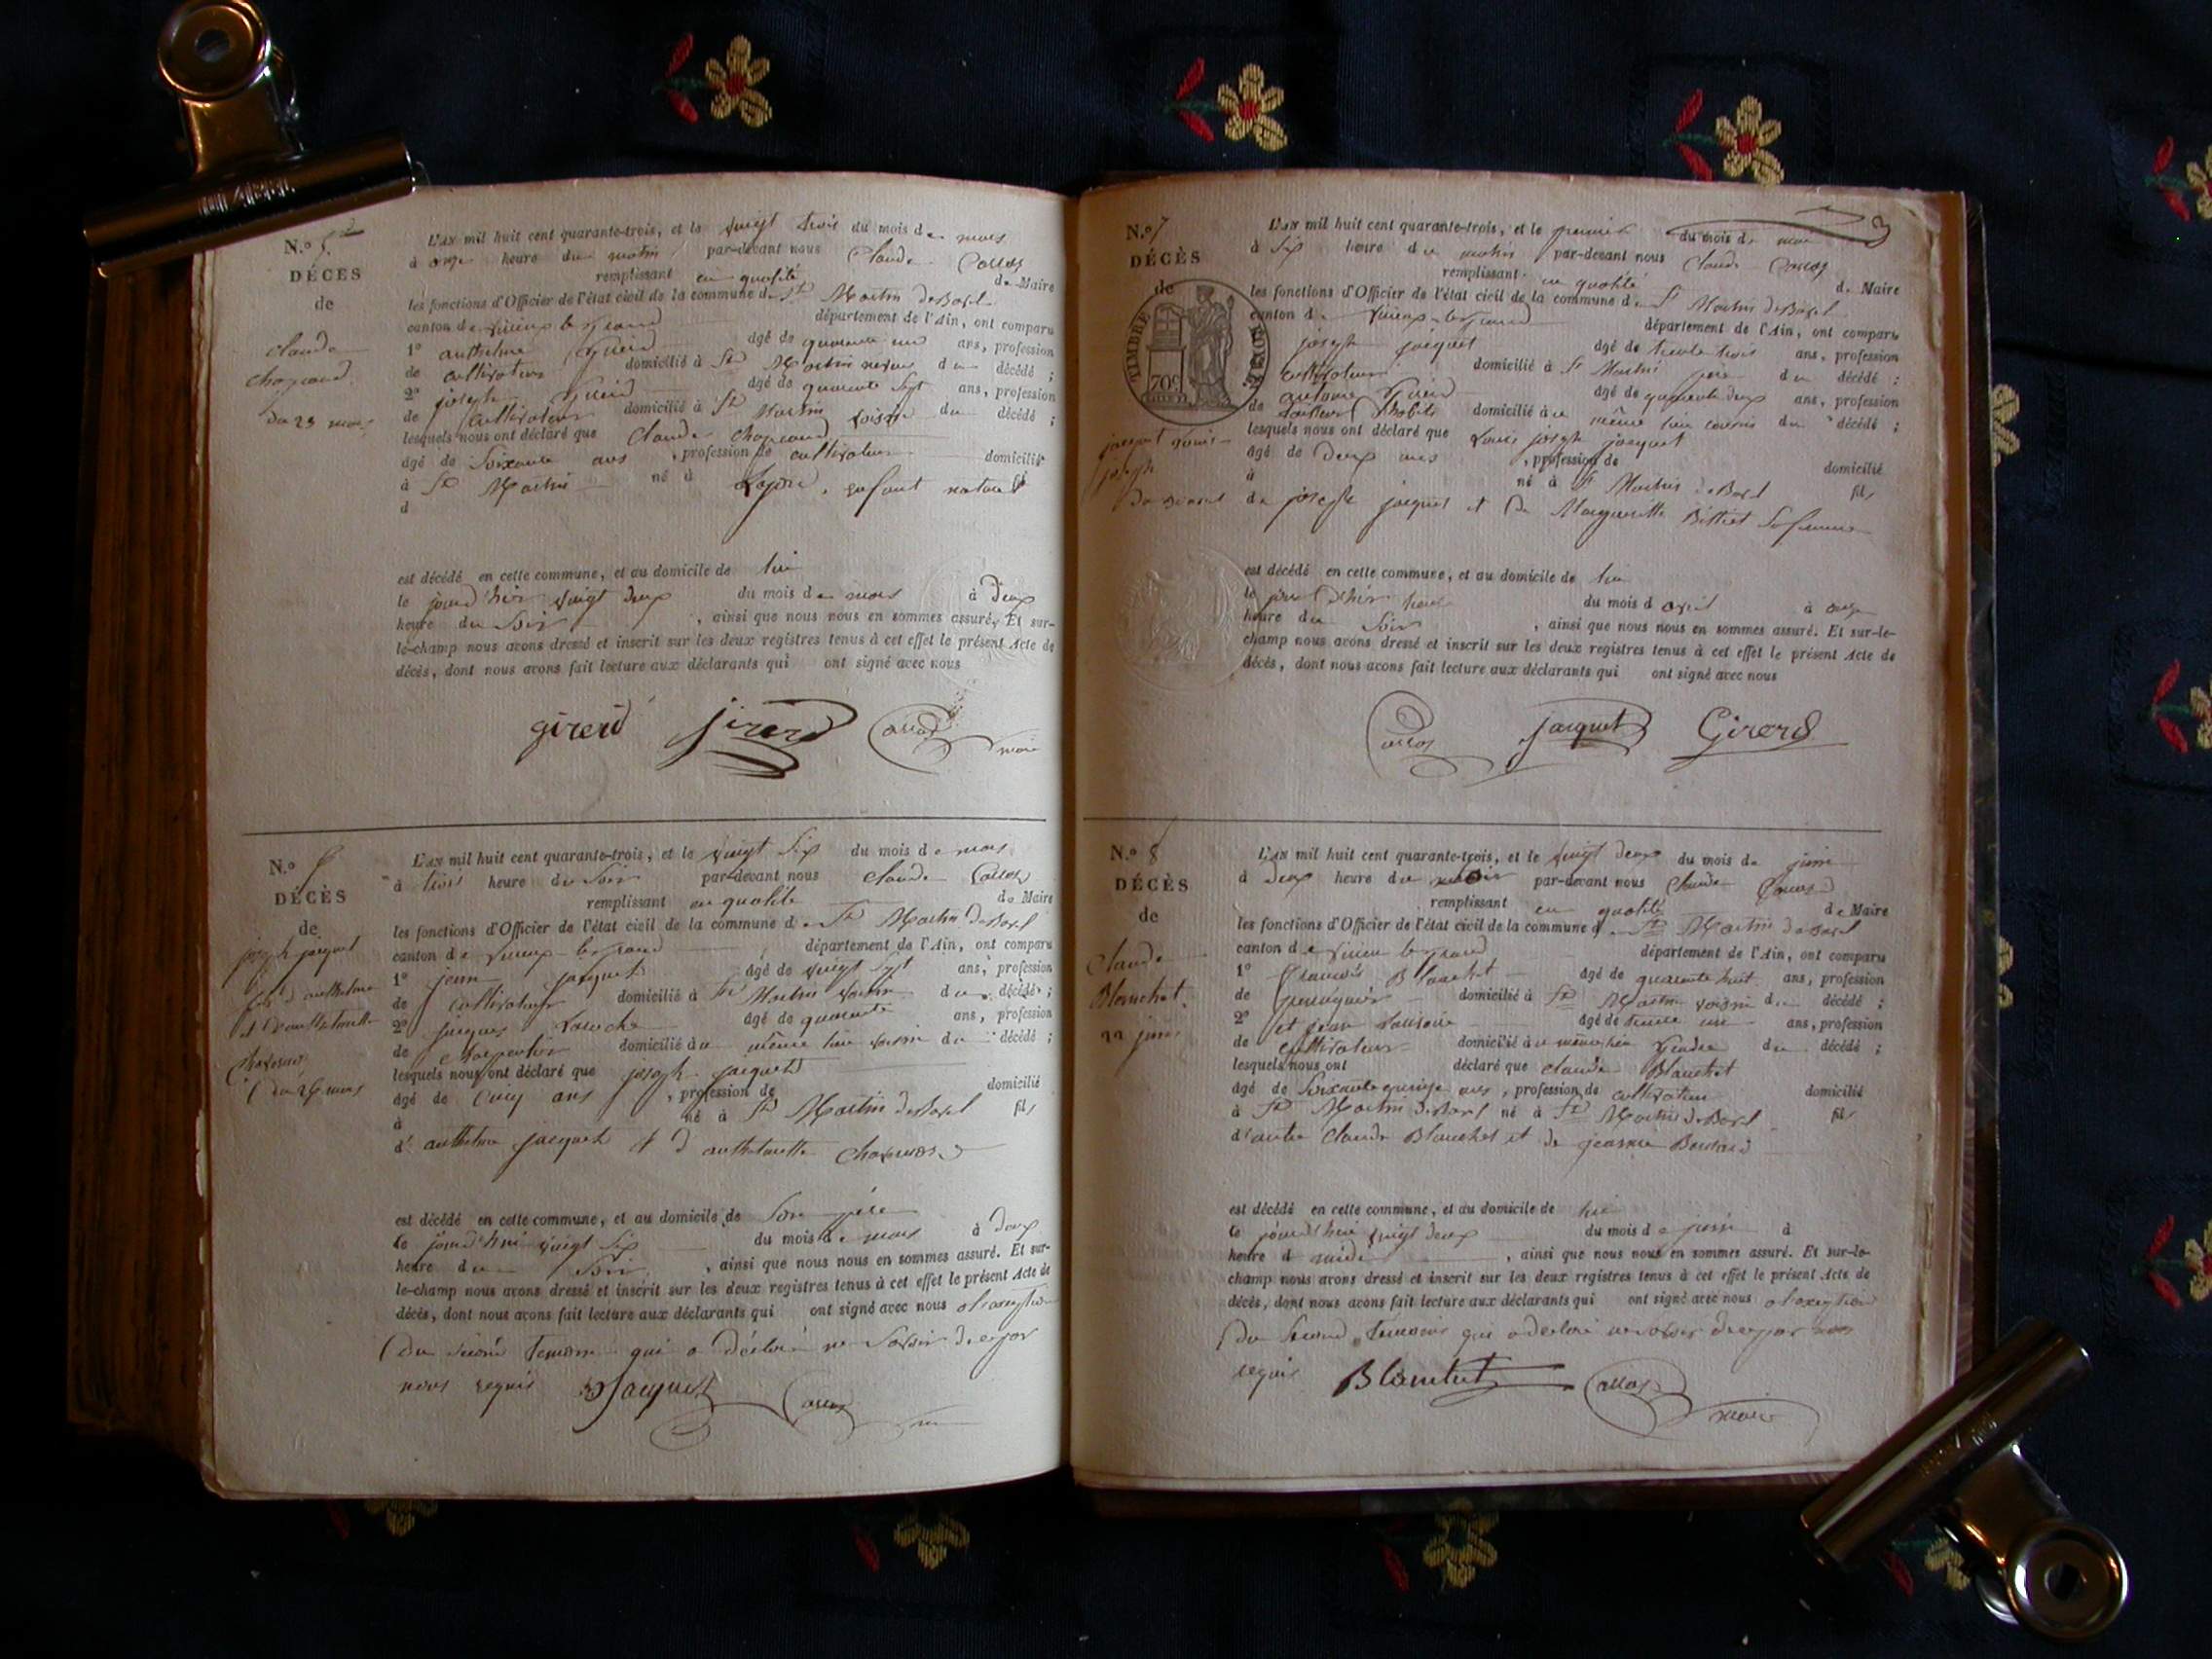 N.º 5.
DÉCÈS
de
claude
chapeaud
du 23 mars
L'AN mil huit cent quarante-trois, et le vingt trois du mois de mars
à onze heure du matin par-devant nous Claude
remplissant en qualité de Maire
les fonctions d'Officier de l'état civil de la commune de St Martin de Bavel
canton de virieux le grand département de l'Ain, ont comparu
1º anthelme Girerd âgé de quarante un ans, profession
de cultivateur domicilié à St Martin neveu du décédé ;
2º joseph Girerd âgé de quarante sept ans, profession
de cultivateur domicilié à St Martin voisin du décédé ;
lesquels nous ont déclaré que Claude chapeaud
âgé de soixante ans, profession de cultivateur domicilié
à St Martin né à enfant naturel
d
est décédé en cette commune, et au domicile de lui
le jour d'hier vingt deux du mois de mars à deux
heure du soir, ainsi que nous nous en sommes assuré. Et sur-
le-champ nous avons dressé et inscrit sur les deux registres tenus à cet effet le présent Acte de
décès, dont nous avons fait lecture aux déclarants qui ont signé avec nous
girerd jirerd maire
N.º 6
DÉCÈS
de
joseph jacquet
fils d'anthelme
et d'anthelmette
du 26 mars
L'AN mil huit cent quarante-trois, et le vingt six du mois de mars
à trois heure du soir par-devant nous Claude
remplissant en qualité de Maire
les fonctions d'Officier de l'état civil de la commune de St Martin de Bavel
canton de virieux le grand département de l'Ain, ont comparu
1º jean jacquet âgé de vingt sept ans, profession
de cultivateur domicilié à St Martin voisin du décédé ;
2º jacques Laroche âgé de quarante ans, profession
de charpentier domicilié au même lieu voisin du décédé ;
lesquels nous ont déclaré que joseph jacquet
âgé de cinq ans, profession de domicilié
à né à St Martin de Bavel fils
d'anthelme jacquet et d'anthelmette
est décédé en cette commune, et au domicile de son père
le jourd'hui vingt six du mois de mars à deux
heure du soir, ainsi que nous nous en sommes assuré. Et sur-
le-champ nous avons dressé et inscrit sur les deux registres tenus à cet effet le présent Acte de
décès, dont nous avons fait lecture aux déclarants qui ont signé avec nous à l'exception
du second temoin qui a déclaré ne savoir de ce par
nous requis Jacquet
3
N.º 7
DÉCÈS
de
TIMBRE ROYAL
70c
jacquet louis
joseph
L'AN mil huit cent quarante-trois, et le premier du mois de mai
à six heure du matin par-devant nous Claude
remplissant en qualité de Maire
les fonctions d'Officier de l'état civil de la commune de St Martin de Bavel
canton de virieux le grand département de l'Ain, ont comparu
joseph jacquet âgé de trente trois ans, profession
cultivateur domicilié à St Martin père du décédé ;
antoine Girerd âgé de quarante deux ans, profession
de tailleur d'habits domicilié au même lieu cousin du décédé ;
lesquels nous ont déclaré que Louis joseph jacquet
âgé de deux mois, profession de domicilié
à né à St Martin de Bavel fils
de joseph jacquet et de Marguerite Billiet sa femme
est décédé en cette commune, et au domicile de lui
le jour d'hier trente du mois d'avril à onze
heure du soir, ainsi que nous nous en sommes assuré. Et sur-le-
champ nous avons dressé et inscrit sur les deux registres tenus à cet effet le présent Acte de
décès, dont nous avons fait lecture aux déclarants qui ont signé avec nous
jacquet Girerd
N.º 8
DÉCÈS
de
Claude
Blanchet
22 juin
L'AN mil huit cent quarante-trois, et le vingt deux du mois de juin
à deux heure du soir par-devant nous Claude
remplissant en qualité de Maire
les fonctions d'Officier de l'état civil de la commune de St Martin de Bavel
canton de virieu le grand département de l'Ain, ont comparu
1º François Blanchet âgé de quarante huit ans, profession
de perruquier domicilié à St Martin voisin du décédé ;
2º et jean âgé de trente un ans, profession
de cultivateur domicilié au même lieu gendre du décédé ;
lesquels nous ont déclaré que claude Blanchet
âgé de soixante quinze ans, profession de cultivateur domicilié
à St Martin de Bavel né à St Martin de Bavel fils
d'autre Claude Blanchet et de jeanne
est décédé en cette commune, et au domicile de lui
le jourd'hui vingt deux du mois de juin à
heure de midi, ainsi que nous nous en sommes assuré. Et sur-le-
champ nous avons dressé et inscrit sur les deux registres tenus à cet effet le présent Acte de
décès, dont nous avons fait lecture aux déclarants qui ont signé avec nous à l'exception
du second temoin qui a déclaré ne savoir de ce par nous
requis Blanchet maire